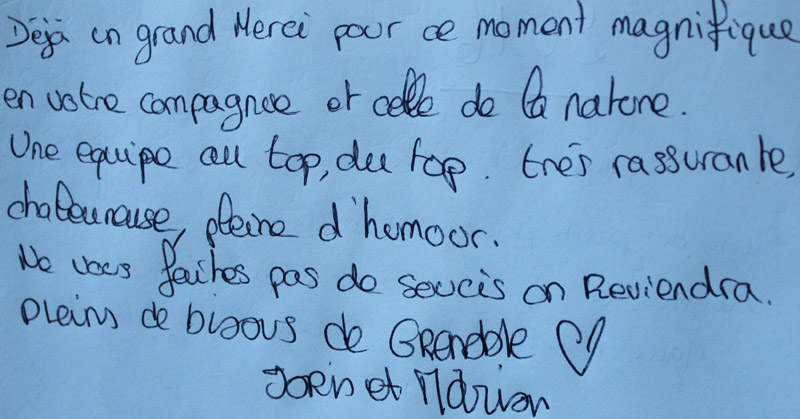 Déjà un grand Merci pour ce moment magnifique
en votre compagnie et celle de la nature.
Une equipe au top, du top. très rassurante,
chaleureuse, pleine d'humour.
Ne vous faites pas de soucis on Reviendra.
Pleins de bisous de Grenoble ♡
Joris et Marion